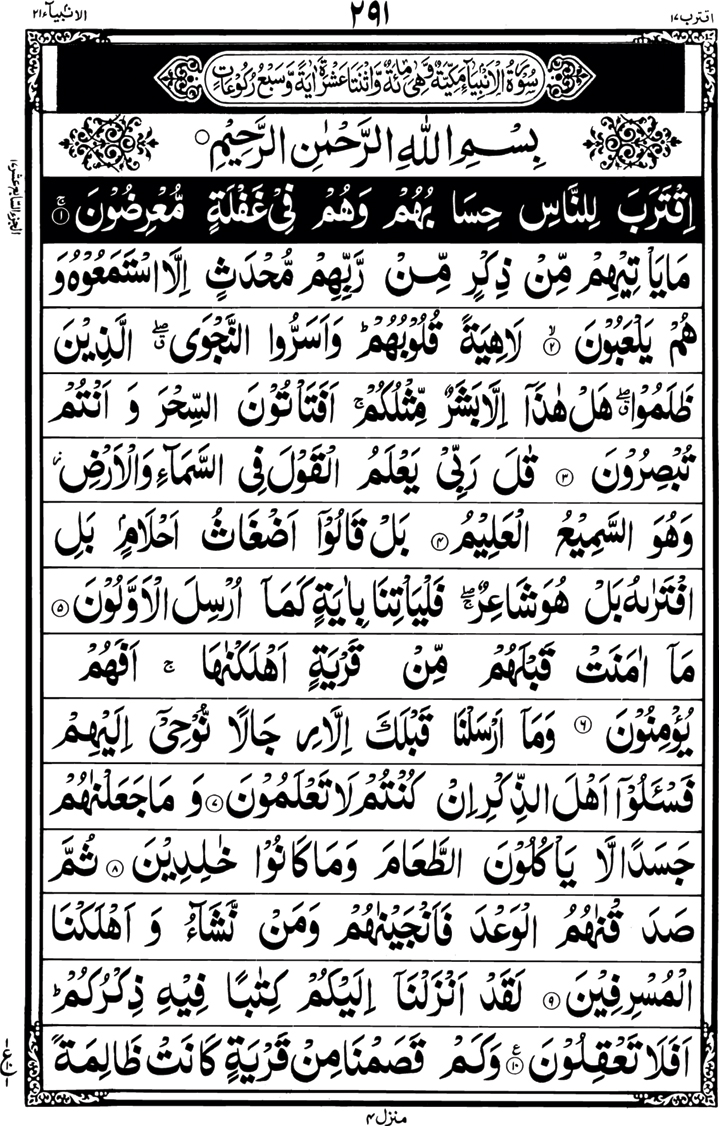 اقترب ١٧
٢٩١
الانبیآء ٢١
سُوْرَةُ الْاَنْۢبِیَآءِ مَكِّیَّةٌ وَّهِیَ مِائَةٌ وَّاثْنَتَا عَشْرَةَ اٰیَةً وَّسَبْعُ رُكُوْعَاتٍ
بِسْمِ اللّٰهِ الرَّحْمٰنِ الرَّحِیْمِ ۝
اِقْتَرَبَ لِلنَّاسِ حِسَابُهُمْ وَهُمْ فِیْ غَفْلَةٍ مُّعْرِضُوْنَ ۚ﴿١﴾
مَا یَاْتِیْهِمْ مِّنْ ذِكْرٍ مِّنْ رَّبِّهِمْ مُّحْدَثٍ اِلَّا اسْتَمَعُوْهُ وَ
هُمْ یَلْعَبُوْنَ ۙ﴿٢﴾ لَاهِیَةً قُلُوْبُهُمْ ؕ وَاَسَرُّوا النَّجْوَی ۖۗ الَّذِیْنَ
ظَلَمُوْا ۖۗ هَلْ هٰذَاۤ اِلَّا بَشَرٌ مِّثْلُكُمْ ۚ اَفَتَاْتُوْنَ السِّحْرَ وَ اَنْتُمْ
تُبْصِرُوْنَ ﴿٣﴾ قٰلَ رَبِّیْ یَعْلَمُ الْقَوْلَ فِی السَّمَآءِ وَالْاَرْضِ ؗ
وَهُوَ السَّمِیْعُ الْعَلِیْمُ ﴿٤﴾ بَلْ قَالُوْۤا اَضْغَاثُ اَحْلَامٍۭ بَلِ
افْتَرٰىهُ بَلْ هُوَ شَاعِرٌ ۖۚ فَلْیَاْتِنَا بِاٰیَةٍ كَمَاۤ اُرْسِلَ الْاَوَّلُوْنَ ﴿٥﴾
مَاۤ اٰمَنَتْ قَبْلَهُمْ مِّنْ قَرْیَةٍ اَهْلَكْنٰهَا ۚ اَفَهُمْ
یُؤْمِنُوْنَ ﴿٦﴾ وَمَاۤ اَرْسَلْنَا قَبْلَكَ اِلَّا رِجَالًا نُّوْحِیْۤ اِلَیْهِمْ
فَسْـَٔلُوْۤا اَهْلَ الذِّكْرِ اِنْ كُنْتُمْ لَا تَعْلَمُوْنَ ﴿٧﴾ وَ مَا جَعَلْنٰهُمْ
جَسَدًا لَّا یَاْكُلُوْنَ الطَّعَامَ وَمَا كَانُوْا خٰلِدِیْنَ ﴿٨﴾ ثُمَّ
صَدَقْنٰهُمُ الْوَعْدَ فَاَنْجَیْنٰهُمْ وَمَنْ نَّشَآءُ وَ اَهْلَكْنَا
الْمُسْرِفِیْنَ ﴿٩﴾ لَقَدْ اَنْزَلْنَاۤ اِلَیْكُمْ كِتٰبًا فِیْهِ ذِكْرُكُمْ ؕ
اَفَلَا تَعْقِلُوْنَ ﴿١٠﴾ ع وَكَمْ قَصَمْنَا مِنْ قَرْیَةٍ كَانَتْ ظَالِمَةً
الجزء السابع عشر ١٧
منزل ٤